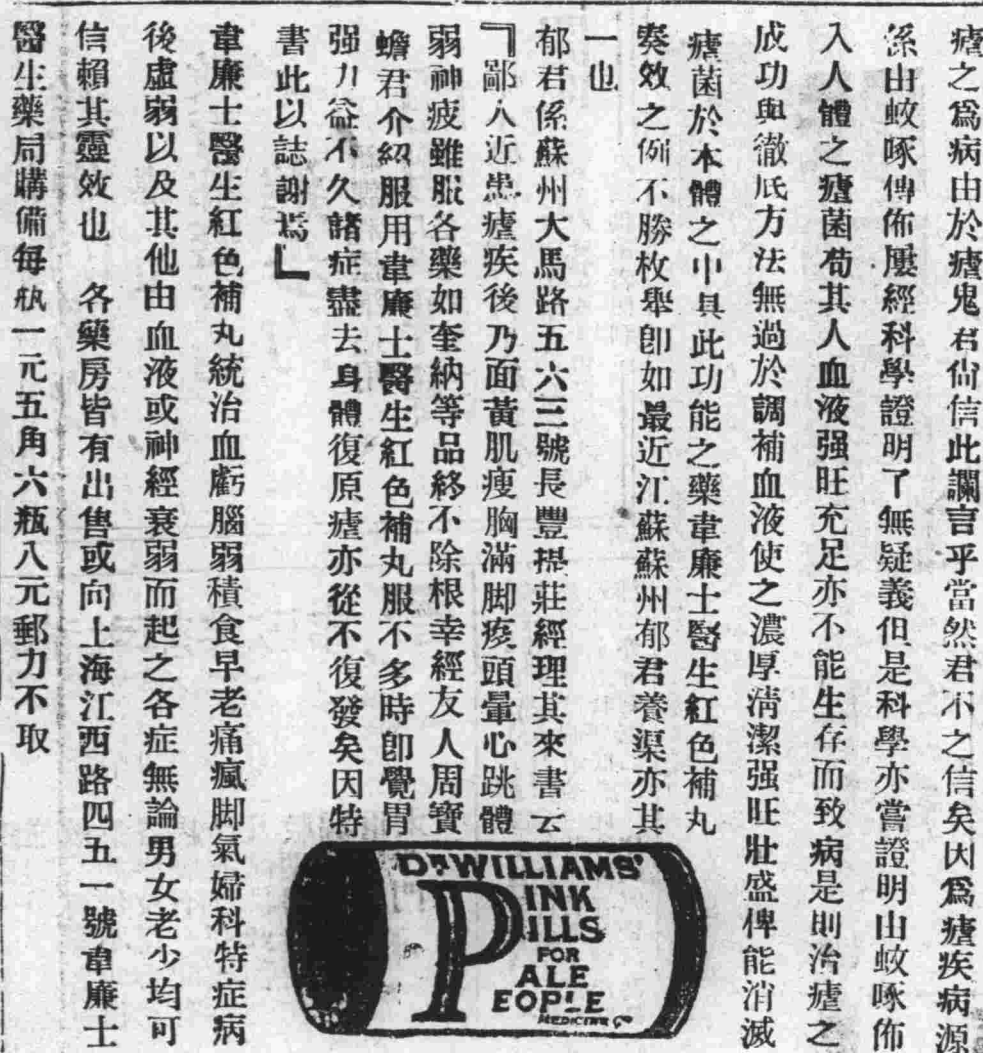 瘧之爲病由於瘧鬼君尙信此讕言乎當然君不之信矣因爲瘧疾病源
係由蚊啄傳佈屢經科學證明了無疑義但是科學亦嘗證明由蚊啄佈
入人體之瘧菌苟其人血液强旺充足亦不能生存而致病是則治瘧之
成功與徹底方法無過於調補血液使之濃厚淸潔强旺壯盛俾能消滅
瘧菌於本體之中具此功能之藥韋廉士醫生紅色補丸
奏效之例不勝枚舉卽如最近江蘇蘇州郁君養渠亦其
一也
郁君係蘇州大馬路五六三號長豐提莊經理其來書云
『鄙人近患瘧疾後乃面黃肌瘦胸滿脚痠頭暈心跳體
弱神疲雖服各藥如奎納等品終不除根幸經友人周寶
蟾君介紹服用韋廉士醫生紅色補丸服不多時卽覺胃
强力益不久諸症盡去身體復原瘧亦從不復發矣因特
書此以誌謝焉』
韋廉士醫生紅色補丸統治血虧腦弱積食早老痛瘋脚氣婦科特症病
後虛弱以及其他由血液或神經衰弱而起之各症無論男女老少均可
信賴其靈效也 各藥房皆有出售或向上海江西路四五一號韋廉士
醫生藥局購備每瓶一元五角六瓶八元郵力不取
DR WILLIAMS'
PINK
PILLS
FOR
PALE
PEOPLE
MEDICINE CO